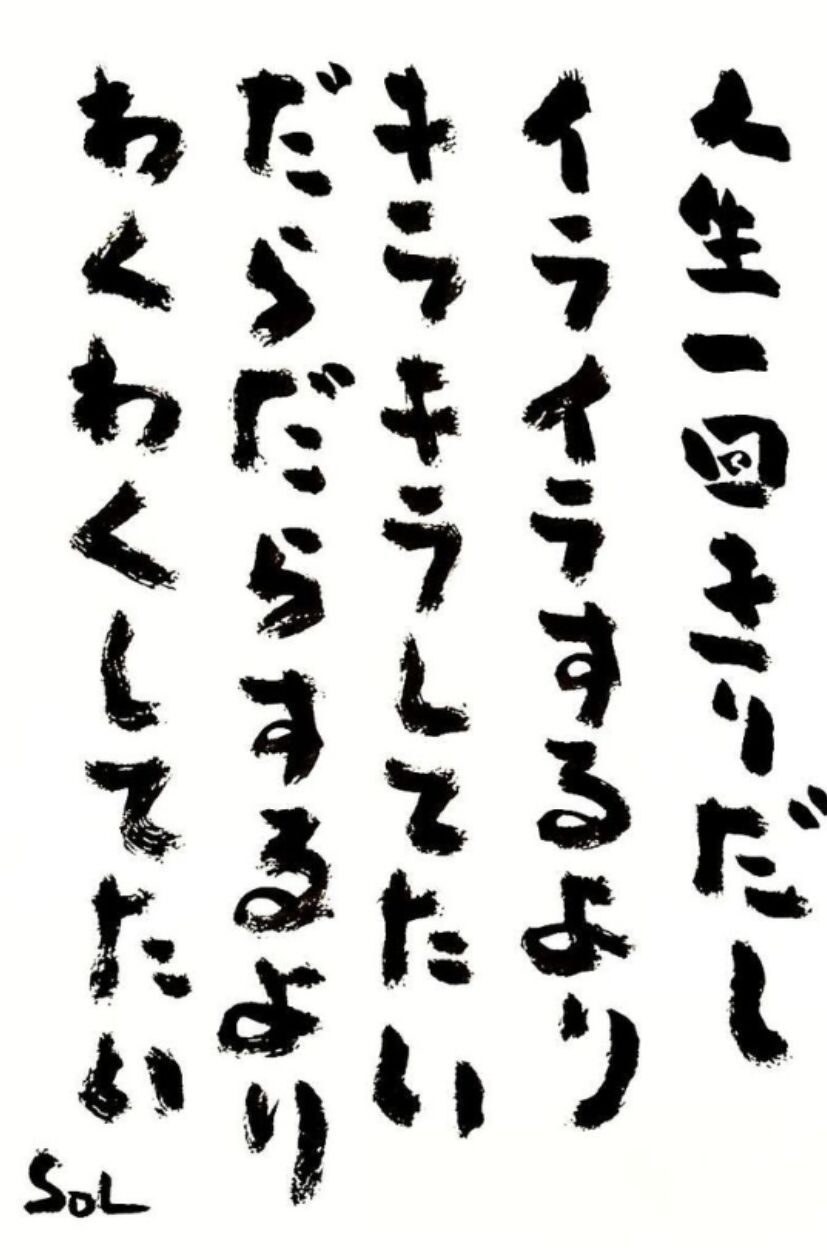 人生一回きりだし
イライラするより
キラキラしてたい
だらだらするより
わくわくしてたい
SOL